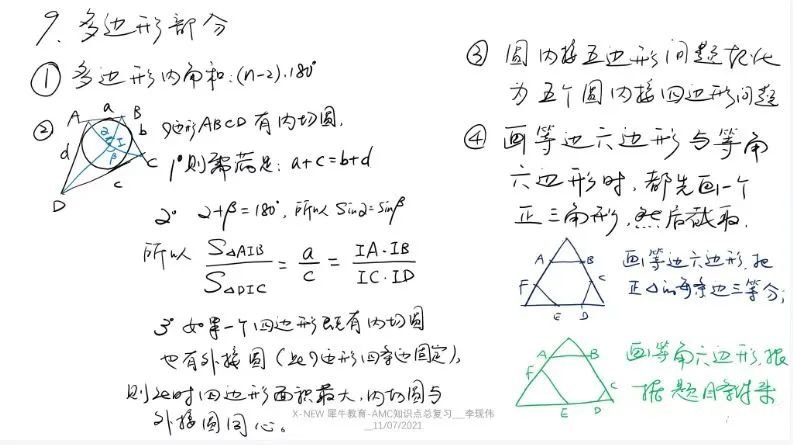 9、多边形部分
① 多边形内角和:(n-2)·180°
② 四边形ABCD有内切圆,
A a B
d α I b
β C
c
D
1° 则需满足: a+c=b+d
2° α+β=180°, 所以 Sinα=Sinβ
所以 S△AIB/S△DIC = a/c = IA·IB/IC·ID
3° 如果一个四边形既有内切圆
也有外接圆(此四边形四条边固定),
则此时四边形面积最大,内切圆与
外接圆同心。
③ 圆内接五边形问题转化
为五个圆内接四边形问题
④ 画等边六边形与等角
六边形时,都先画一个
正三角形,然后截取.
A B
F C
E D
画等边六边形,把
正△的每条边三等分;
A B
F C
E D
画等角六边形,根
据题目条件来
X-NEW 犀牛教育-AMC知识点总复习__李现伟
__11/07/2021